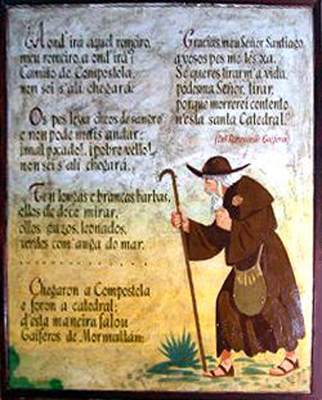 ¿A ond'irá aquel romeiro,
meu romeiro a ond'irá?
Camiño de Compostela,
non sei s'alí chegará.
Os pes leva cheos de sangre
e non pode máis andar;
¡mal pocado!, ¡pobre vello!,
non sei s'alí chegará.
Ten longas e brancas barbas,
ollos de doce mirar,
ollos gazos, leonados,
verdes com'auga do mar.
. . . . . . . . . . . . . . .
Chegaron a Compostela
e foron a catedral;
d'esta maneira falou
Gaiferos de Mormaltán:
"Gracias, meu Señor Santiago,
a vosos pes me tes xa.
Se queres tirarm'a vida,
pódesma Señor, tirar,
porque morrerei contento
n'esta santa Catedral."
(Del Romance de Gaiferos)